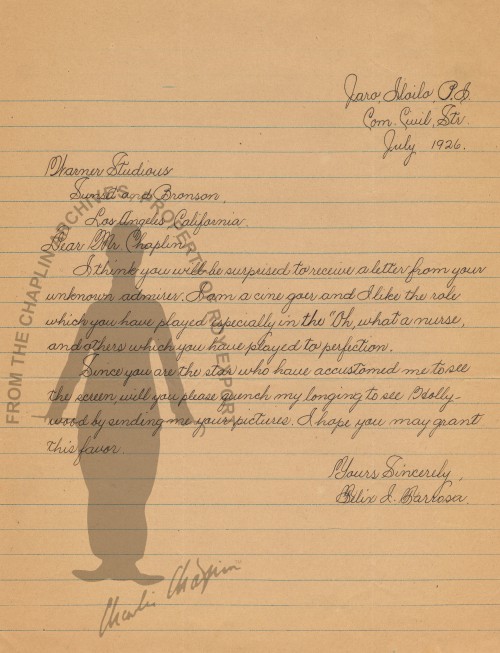 Jaro, Iloilo, P.I.
Com. Civil, Str.
July 1926.
Warner Studious
Sunset and Bronson,
Los Angeles California.
Dear Mr. Chaplin,
I think you will be surprised to receive a letter from your
unknown admirer. I am a cine goer and I like the role
which you have played especially in the "Oh, what a nurse,
and others which you have played to perfection.
Since you are the star who have accustomed me to see
the screen will you please quench my longing to see Holly-
wood by sending me your pictures. I hope you may grant
this favor.
Yours Sincerely,
Felix I. Barrosa.
FROM THE CHAPLIN ARCHIVES PROPERTY OF ROY EXPORT
Charlie Chaplin